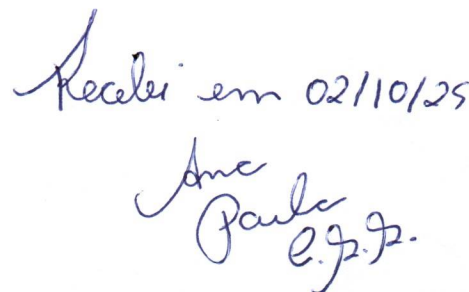 Recebi em 02/10/25
Ana
Paula